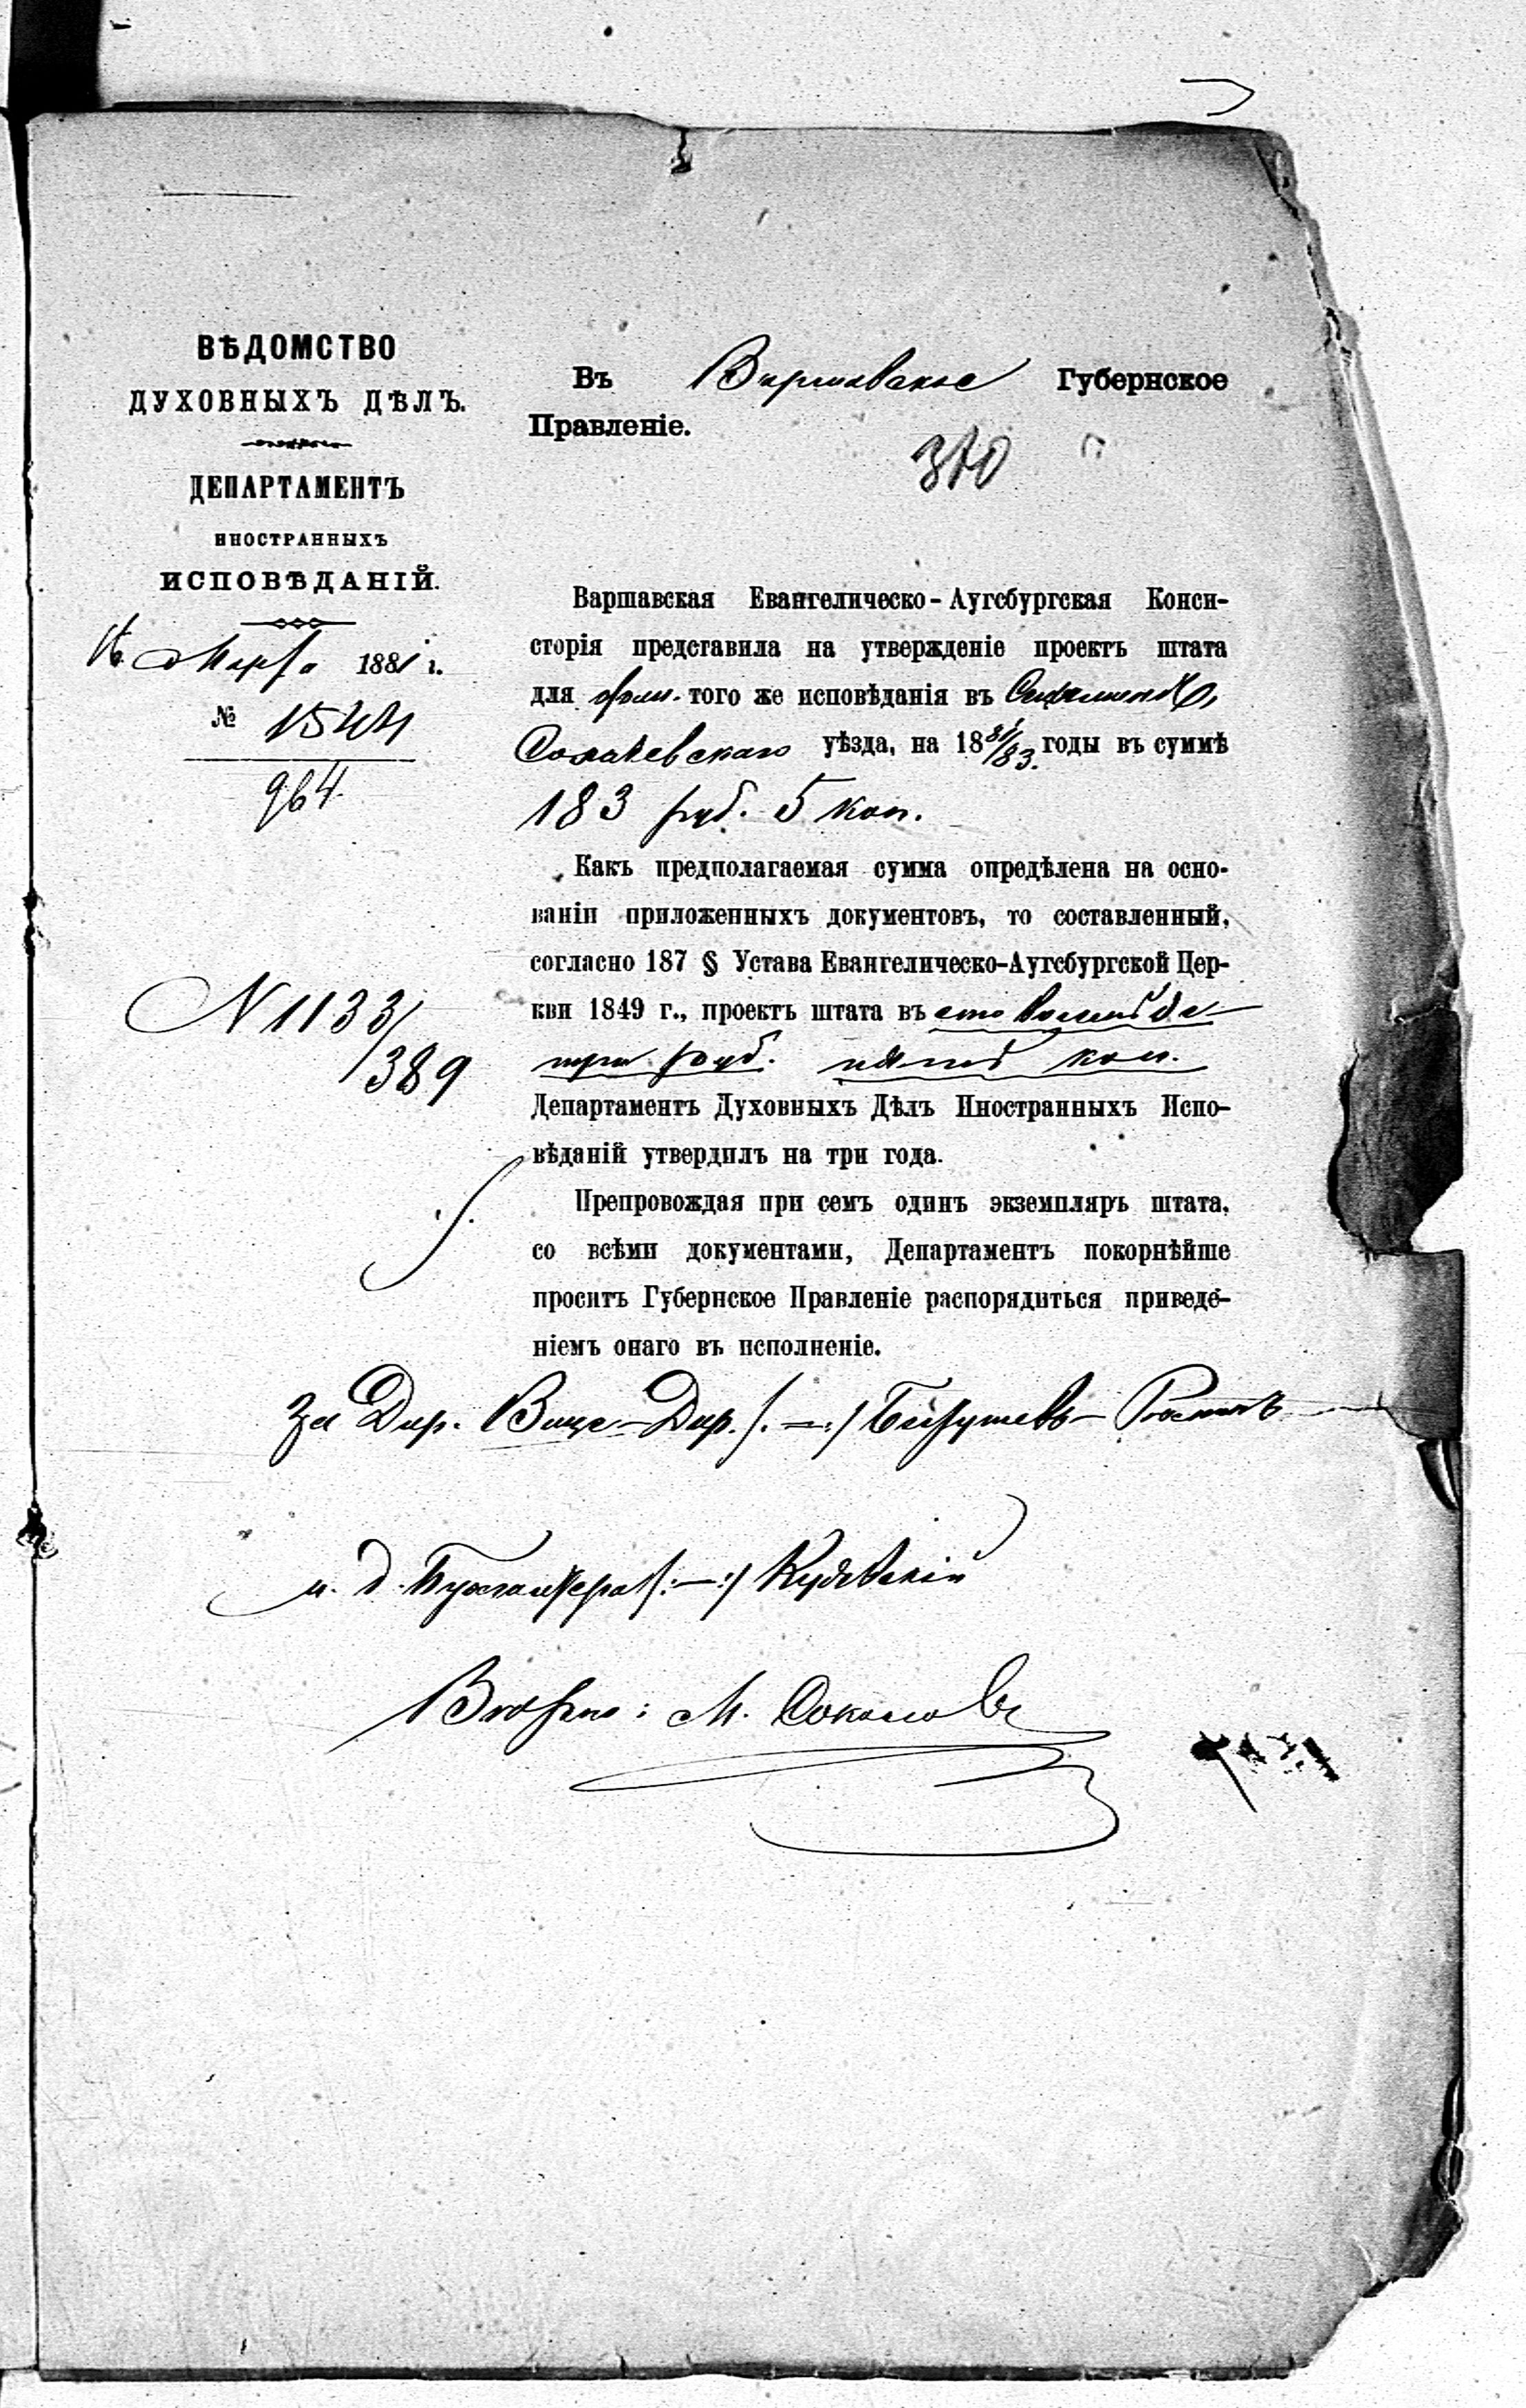 ВѢДОМСТВО
ДУХОВНЫХЪ ДѢЛЪ.
ДЕПАРТАМЕНТЪ
ИНОСТРАННЫХЪ
ИСПОВѢДАНІЙ.
Марта 1881 г.
№ 1544
964
N 1133/
389
Въ Варшавское Губернское
Правленіе.
Варшавская Евангелическо-Аугсбургская Конси-
сторія представила на утвержденіе проектъ штата
для фил. того же исповѣданія въ
Сохачевскаго уѣзда, на 1881/83. годы въ суммѣ
183 руб. 5 коп.
Какъ предполагаемая сумма опредѣлена на осно-
ваніи приложенныхъ документовъ, то составленный,
согласно 187 § Устава Евангелическо-Аугсбургской Цер-
кви 1849 г., проектъ штата въ сто восемьде-
три руб. пять коп.
Департаментъ Духовныхъ Дѣлъ Иностранныхъ Испо-
вѣданій утвердилъ на три года.
Препровождая при семъ одинъ экземпляръ штата,
со всѣми документами, Департаментъ покорнѣйше
проситъ Губернское Правленіе распорядиться приведе-
ніемъ онаго въ исполненіе.
За Дир. Вице-Дир. /.—./
и. д. Бухгалтера /:—:/ Куявскій
Вѣрно: М. Соколовъ